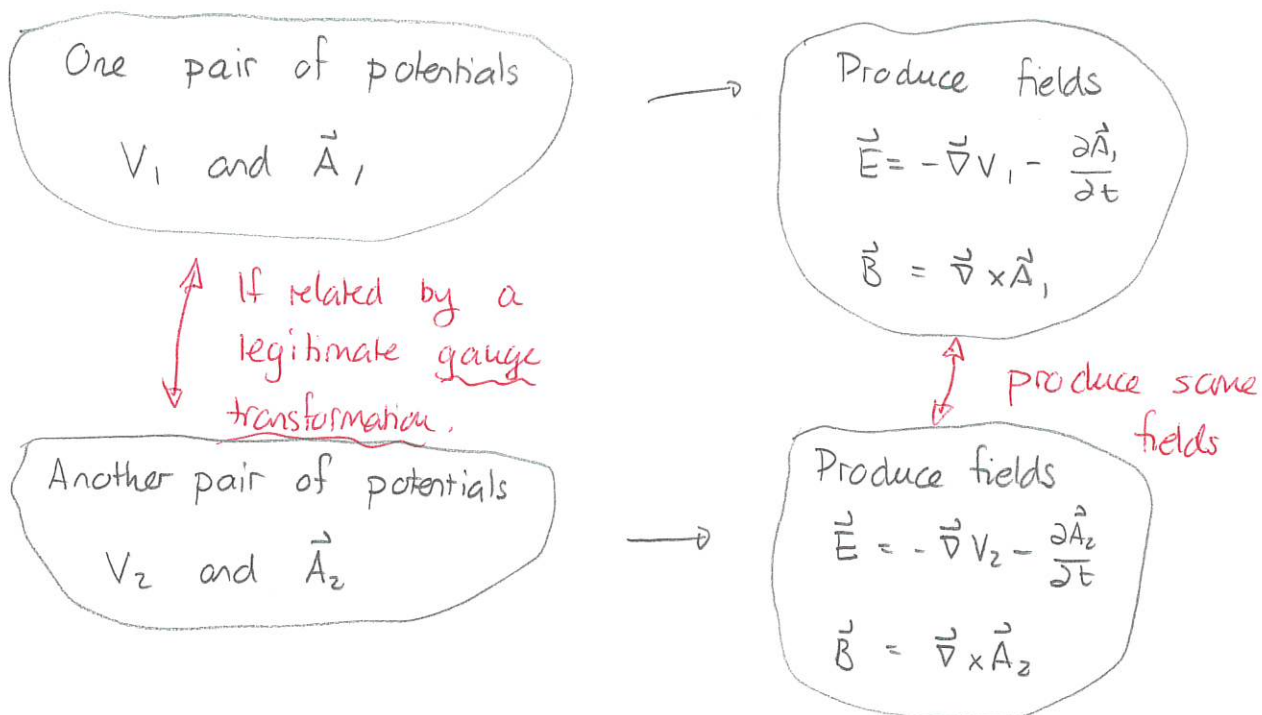 One pair of potentials
V₁ and A⃗₁
Produce fields
E⃗ = -∇⃗V₁ - ∂A⃗₁/∂t
B⃗ = ∇⃗ × A⃗₁
If related by a
legitimate gauge
transformation.
produce same
fields
Another pair of potentials
V₂ and A⃗₂
Produce fields
E⃗ = -∇⃗V₂ - ∂A⃗₂/∂t
B⃗ = ∇⃗ × A⃗₂